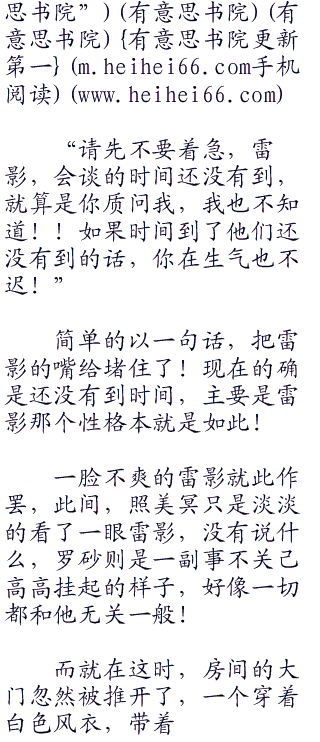 思书院”) (有意思书院) (有
意思书院) {有意思书院更新
第一} (m.heihei66.com手机
阅读) (www.heihei66.com)
“请先不要着急，雷
影，会谈的时间还没有到，
就算是你质问我，我也不知
道！！如果时间到了他们还
没有到的话，你在生气也不
迟！”
简单的以一句话，把雷
影的嘴给堵住了！现在的确
是还没有到时间，主要是雷
影那个性格本就是如此！
一脸不爽的雷影就此作
罢，此间，照美冥只是淡淡
的看了一眼雷影，没有说什
么，罗砂则是一副事不关己
高高挂起的样子，好像一切
都和他无关一般！
而就在这时，房间的大
门忽然被推开了，一个穿着
白色风衣，带着